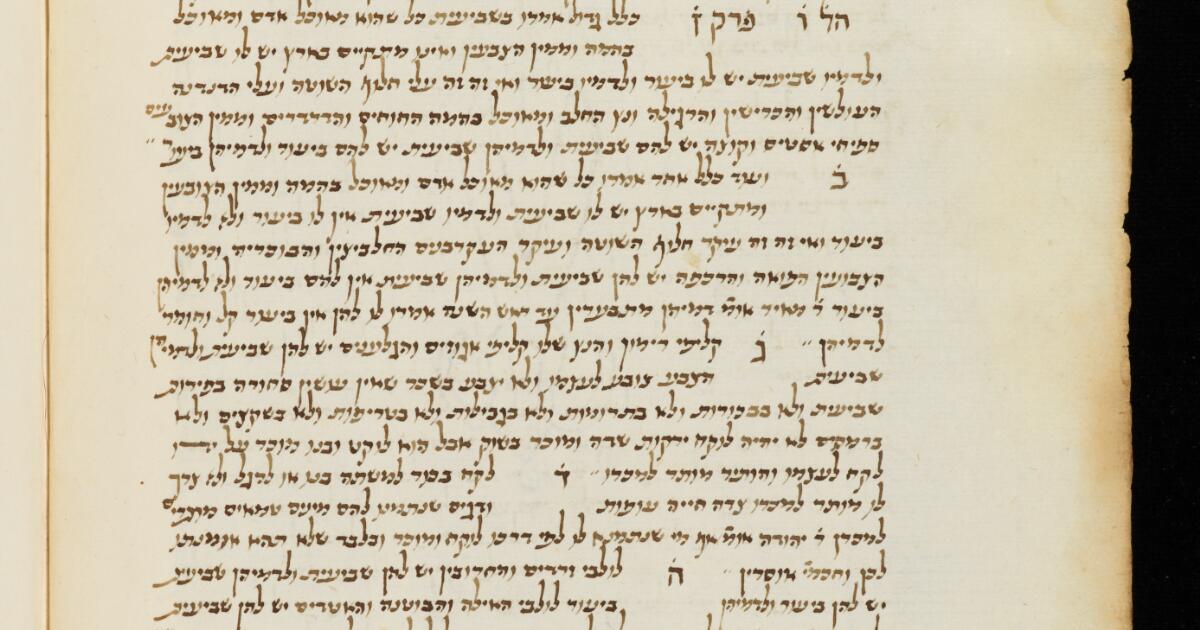 הל׳ ו׳ פרק ז׳ כלל גדול אמרו בשביעית כל שהוא מאוכל אדם ומאוכל
בהמה וממין הצבעין ואינו מתקיים בארץ יש לו שביעית
ולדמיו שביעית יש לו ביעור ולדמיו ביעור ואי זה זה עלי הלוף השוטה ועלי הדנדנה
העולשין והכרישין והרגילה ונץ החלב ומאוכל בהמה החוחים והדרדרים וממין הצובעים
ספיחי אסטיס וקוצה יש להם שביעית ולדמיהן שביעית יש להם ביעור ולדמיהן ביעור
ב ועוד כלל אחר אמרו כל שהוא מאוכל אדם ומאוכל בהמה וממין הצובעין
ומתקיים בארץ יש לו שביעית ולדמיו שביעית אין לו ביעור ולא לדמיו
ביעור ואי זה זה עיקר הלוף השוטה ועיקר העקרבנים החלביצין והבוכריה וממין
הצבועין הפואה והרכפה יש להן שביעית ולדמיהן שביעית אין להם ביעור ולא לדמיהן
ביעור ר׳ מאיר אומ׳ דמיהן מתבערין עד ראש השנה אמרו לו להן אין ביעור קל וחומר
לדמיהן ג קליפי רימון והנץ שלו קליפי אגוזים והגלעינים יש להן שביעית ולדמיהן
שביעית הצבע צובע לעצמו ולא יצבע בשכר שאין עושין סחורה בפירות
שביעית ולא בבכורות ולא בתרומות ולא בנבילות ולא בטריפות ולא בשקצים ולא
ברמסים לא יהיה לוקח ירקות שדה ומוכר בשוק אבל הוא לוקט ובנו מוכר על ידו
לקח לעצמו והותיר מותר למכרו ד לקח בכור למשתה בנו או לרגל ולא צרך
לו מותר למכרו צדה חייה עופות ודגים שנתמנו להם מינים טמאים מותרים
למכרן ר׳ יהודה אומ׳ אף מי שנתמנא לו לפי דרכו לוקח ומוכר ובלבד שלא תהא אומנתו
לכן וחכמ׳ אוסרין ה לולבי זרדים והחרובין יש להן שביעית ולדמיהן שביעית
יש להן ביעור ולדמיהן ביעור לולבי האילה והבוטנה והאטדים יש להן שביעית